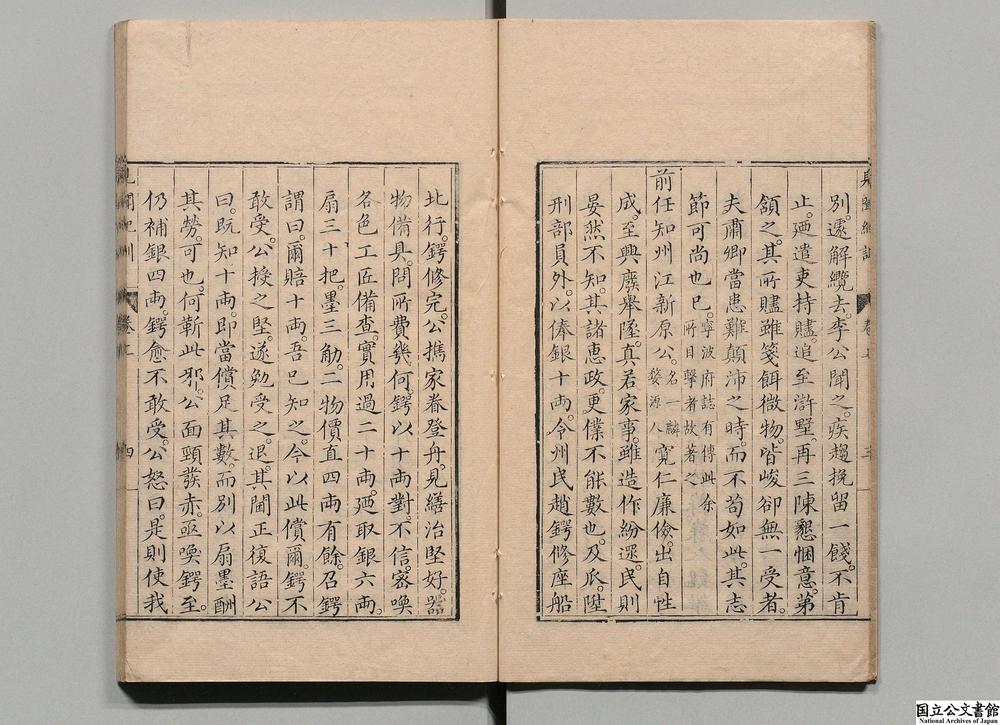 別。遽解纜去。李公聞之。疾趨挽留一餞。不肯
止。廼遣吏持贐。追至滸墅。再三陳懇悃意。第
頷之。其所贐雖箋餌微物。皆峻卻無一受者。
夫肅卿當患難顛沛之時。而不苟如此。其志
節可尚也已。寧波府誌有傳此余
所目擊者故著之
前任知州江新原公。名一麟
婺源人寬仁廉儉。出自性
成。至興廢舉墜。真若家事。雖造作紛遝。民則
晏然不知。其諸惠政。更僕不能數也。及瓜。陞
刑部員外。以俸銀十両。令州民趙鍔修座船
北行。鍔修完。公攜家眷登舟。見繕治堅好。器
物備具。問所費幾何。鍔以十両對。不信。密喚
各色工匠備查。實用過二十両。廼取銀六両。
扇三十把。墨三觔。二物價直四両有餘。召鍔
謂曰。爾賠十両。吾已知之。今以此償爾。鍔不
敢受。公授之堅。遂勉受之。退。其閫正復語公
曰。既知十両。即當償足其數。而別以扇墨酬
其勞。可也。何靳此邪。公面頸發赤。亟喚鍔至。
仍補銀四両。鍔愈不敢受。公怒曰。是則使我
見聞紀訓
卷上
四
国立公文書館
National Archives of Japan